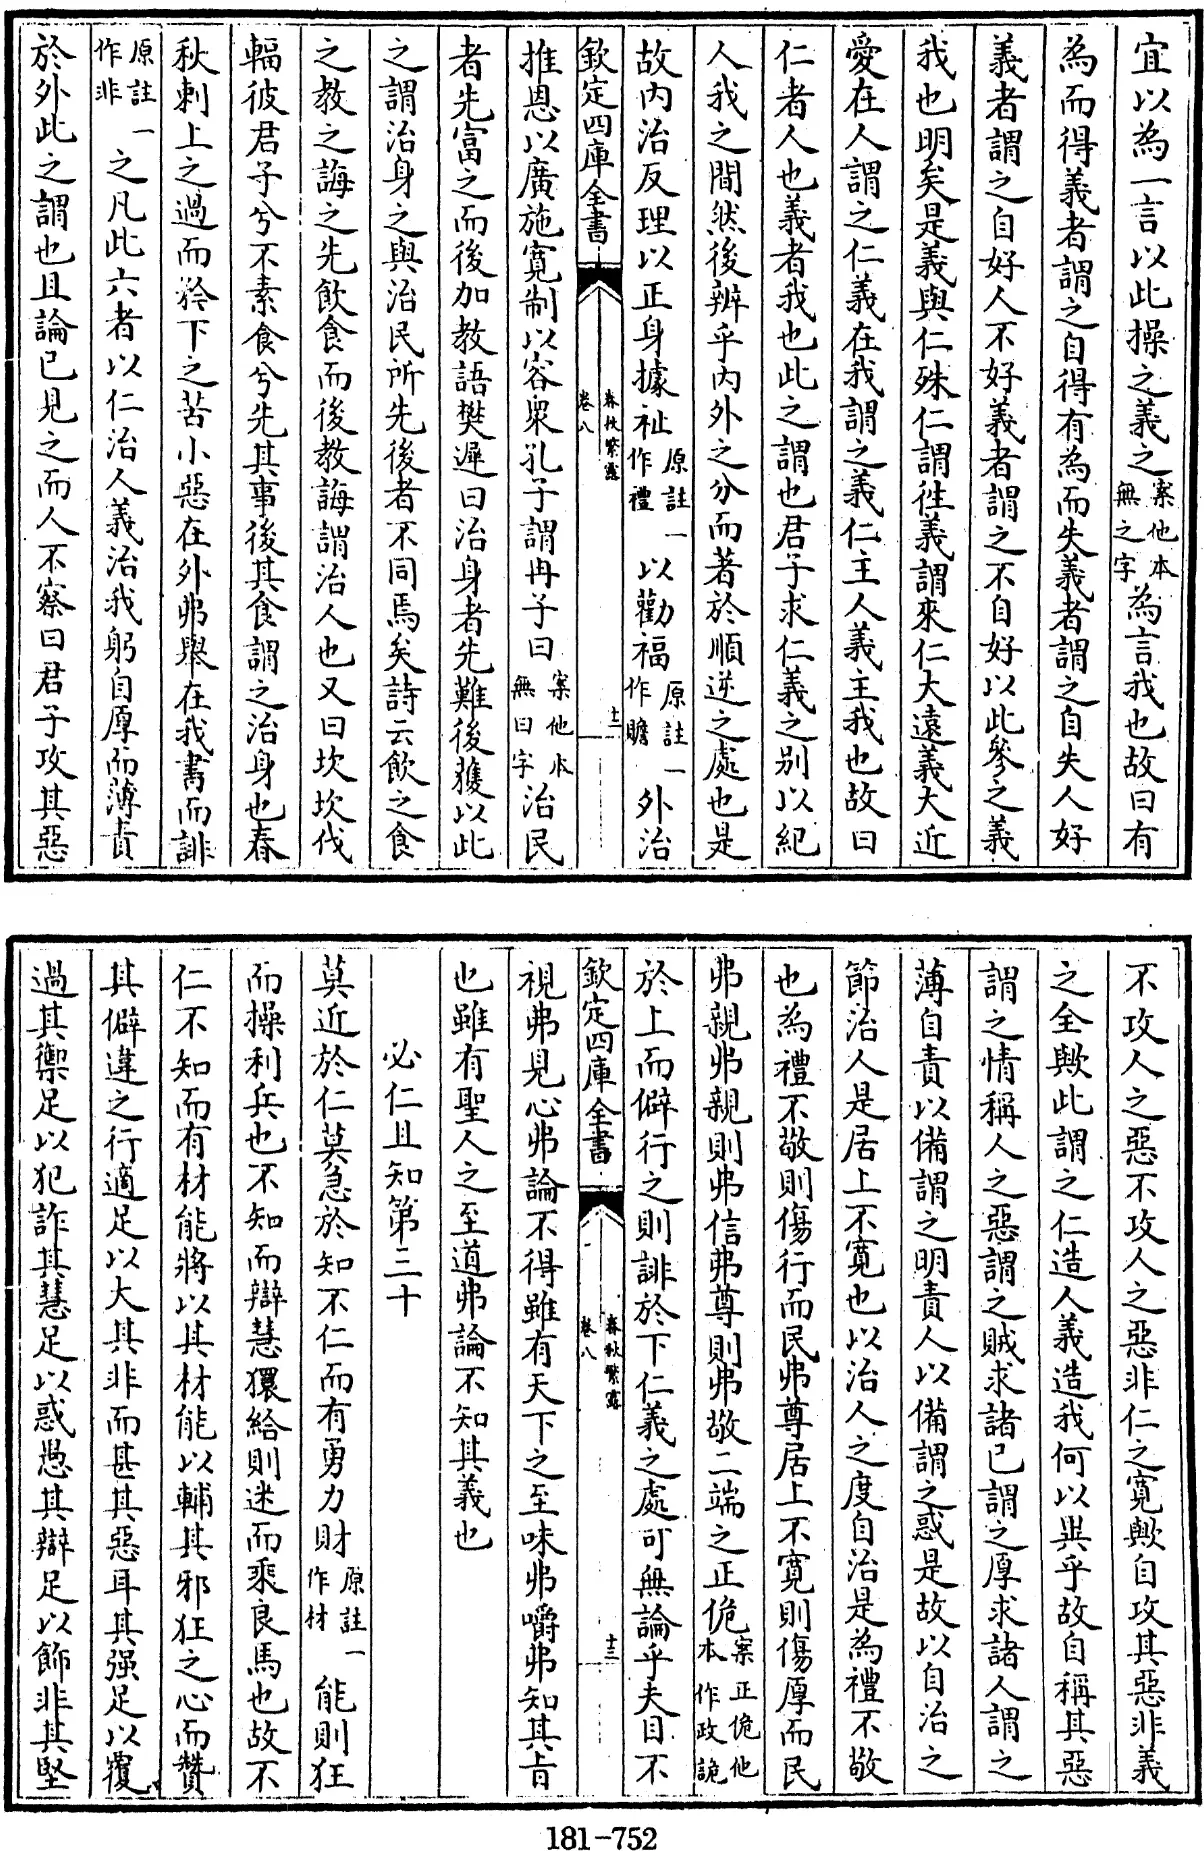 宜以為一言以此操之義之案他本無之字為言我也故曰有
為而得義者謂之自得有為而失義者謂之自失人好
義者謂之自好人不好義者謂之不自好以此參之義
我也明矣是義與仁殊仁謂徃義謂來仁大遠義大近
愛在人謂之仁義在我謂之義仁主人義主我也故曰
仁者人也義者我也此之謂也君子求仁義之别以紀
人我之間然後辨乎内外之分而著於順逆之處也是
故内治反理以正身據祉原註一作禮以勸福原註一作贍外治
欽定四庫全書
春秋繁露
卷八
十二
推恩以廣施寛制以容衆孔子謂冉子曰案他本無曰字治民
者先富之而後加教語樊遲曰治身者先難後獲以此
之謂治身之與治民所先後者不同焉矣詩云飲之食
之教之誨之先飲食而後教誨謂治人也又曰坎坎伐
輻彼君子兮不素食兮先其事後其食謂之治身也春
秋刺上之過而矜下之苦小惡在外弗舉在我書而誹
原註一作非之凡此六者以仁治人義治我躬自厚而薄責
於外此之謂也且論已見之而人不察曰君子攻其惡
不攻人之惡不攻人之惡非仁之寛歟自攻其惡非義
之全歟此謂之仁造人義造我何以異乎故自稱其惡
謂之情稱人之惡謂之賊求諸已謂之厚求諸人謂之
薄自責以備謂之明責人以備謂之惑是故以自治之
節治人是居上不寛也以治人之度自治是為禮不敬
也為禮不敬則傷行而民弗尊居上不寛則傷厚而民
弗親弗親則弗信弗尊則弗敬二端之正佹案正佹他本作政詭
於上而僻行之則誹於下仁義之處可無論乎夫目不
欽定四庫全書
春秋繁露
卷八
十三
視弗見心弗論不得雖有天下之至味弗嚼弗知其旨
也雖有聖人之至道弗論不知其義也
必仁且知第三十
莫近於仁莫急於知不仁而有勇力財原註一作材能則狂
而操利兵也不知而辯慧獧給則迷而乘良馬也故不
仁不知而有材能將以其材能以輔其邪狂之心而贊
其僻違之行適足以大其非而甚其惡耳其强足以覆
過其禦足以犯詐其慧足以惑愚其辯足以飾非其堅
181-752